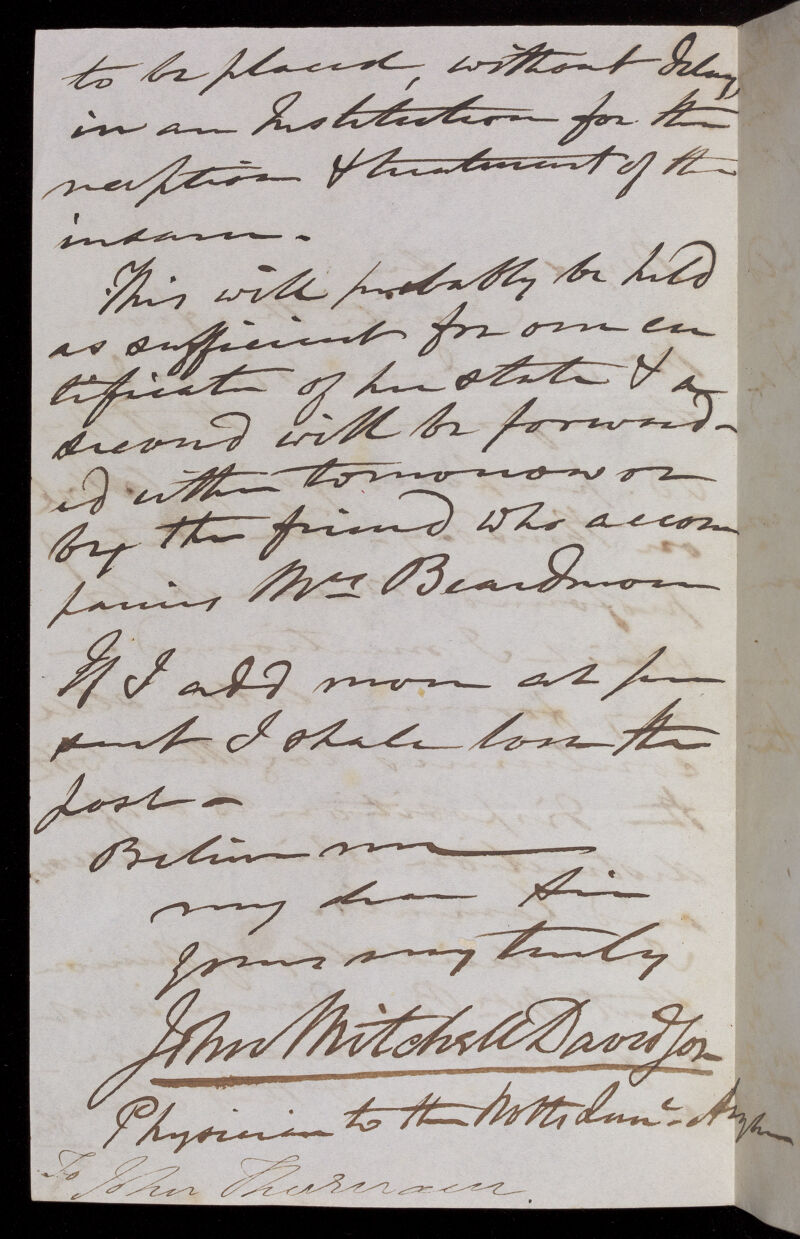 to be placed, without delay
in an Institution for the
reception & treatment of the
insane.
This will probably be held
as sufficient for one cer
tificate of her state & a
second will be forward-
ed either tomorrow or
by the friend who accom
panies Mrs Beardmore
If I add more at pre
sent I shall lose the
post -
Believe me
my dear Sir
yours very truly
John Mitchell Davidson
Physician to the Notts Lunc. Asylum
To John Thurnam.